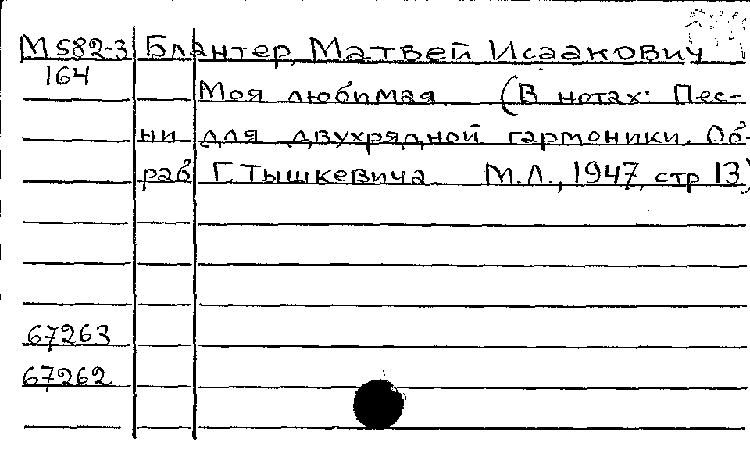 М582-3 Блантер, Матвей Исаакович
164
Моя любимая (В нотах: Пес-
ни для двухрядной гармоники. Об-
раб Г. Тышкевича М.Л., 1947, стр 13)
67263
67262